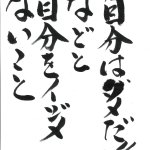 自分はダメだ
などと
自分をイジメ
ないこと